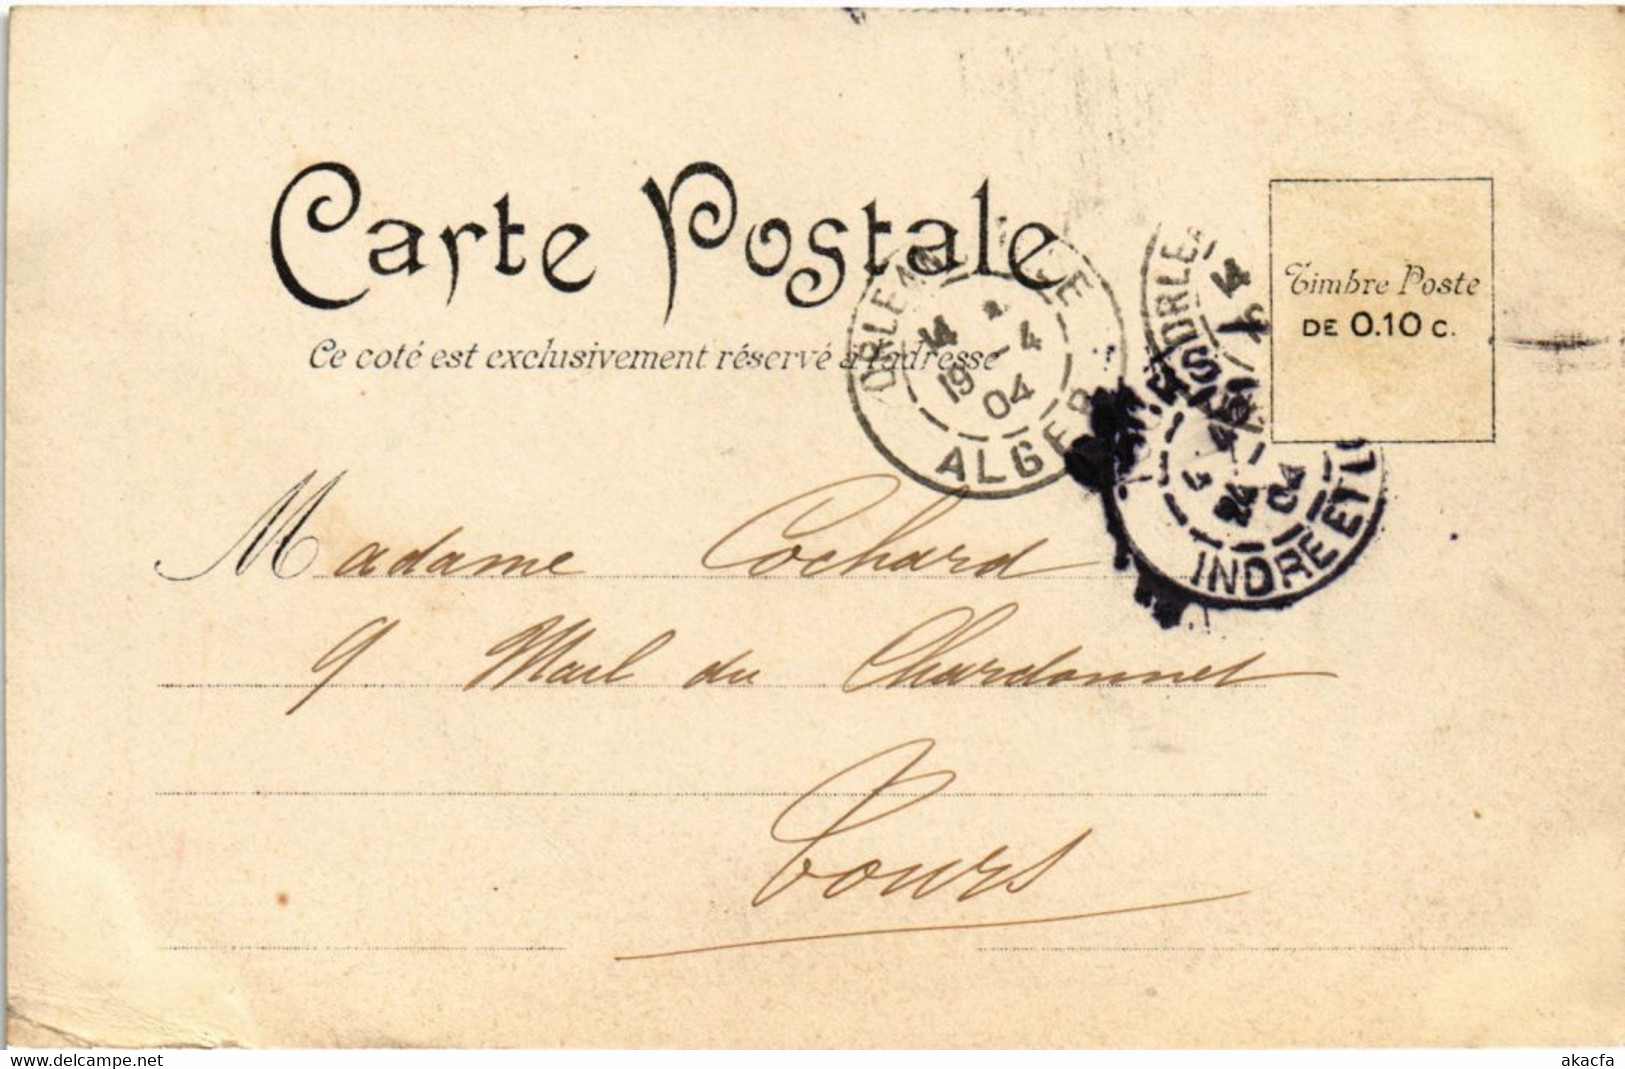 Carte Postale
Ce coté est exclusivement réservé à l'adresse
Timbre Poste
DE 0.10 C.
ORLEAN
14 4
19 04
ALGER
ORLE
14
24 04
INDRE ET L
Madame Cochard
9 Mail du Chardonnet
Tours
delcampe.net
akacfa